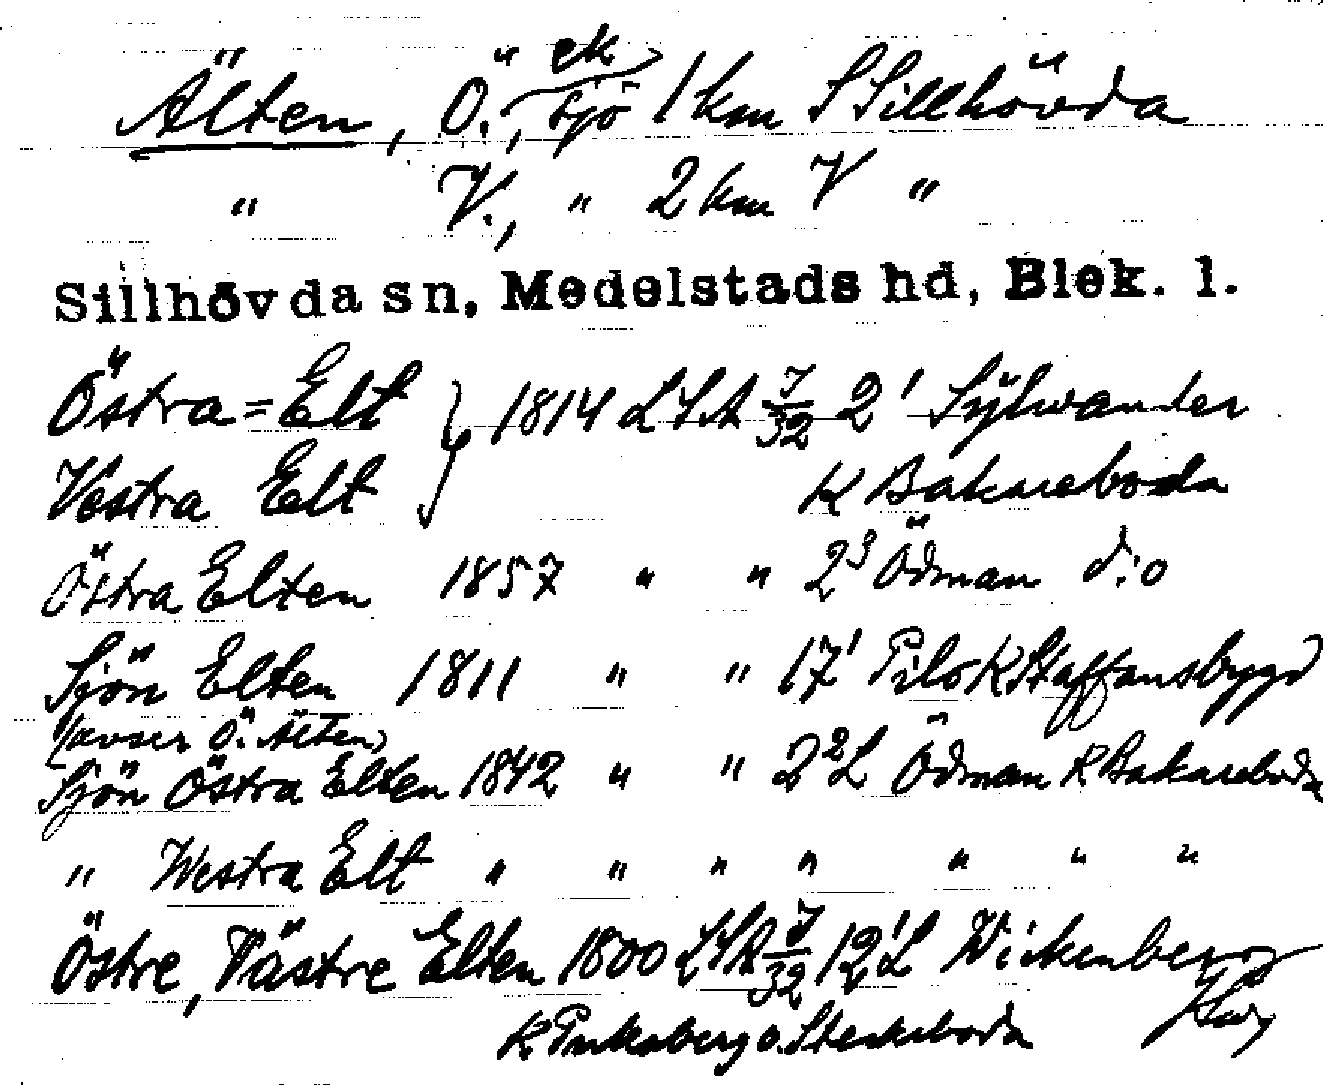 Älten, Ö., ek sjö 1 km S Sillhövda
" V., " 2 km V "
Sillhövda sn, Medelstads hd, Blek. l.
Östra=Elt } 1814 LSA J/32 2¹ Sylwander
Vestra Elt K Bakareboda
Östra Elten 1857 " " 2³ Ödman d:o
Sjön Elten 1811 " " 17¹ Pilo K Staffansbygd
(avser Ö. Älten)
Sjön Östra Elten 1842 " " 2²L Ödman K Bakareboda
" Westra Elt " " " " " " "
Östre, Västre Elten 1800 LSA J/32 12¹L Wickenberg
K.